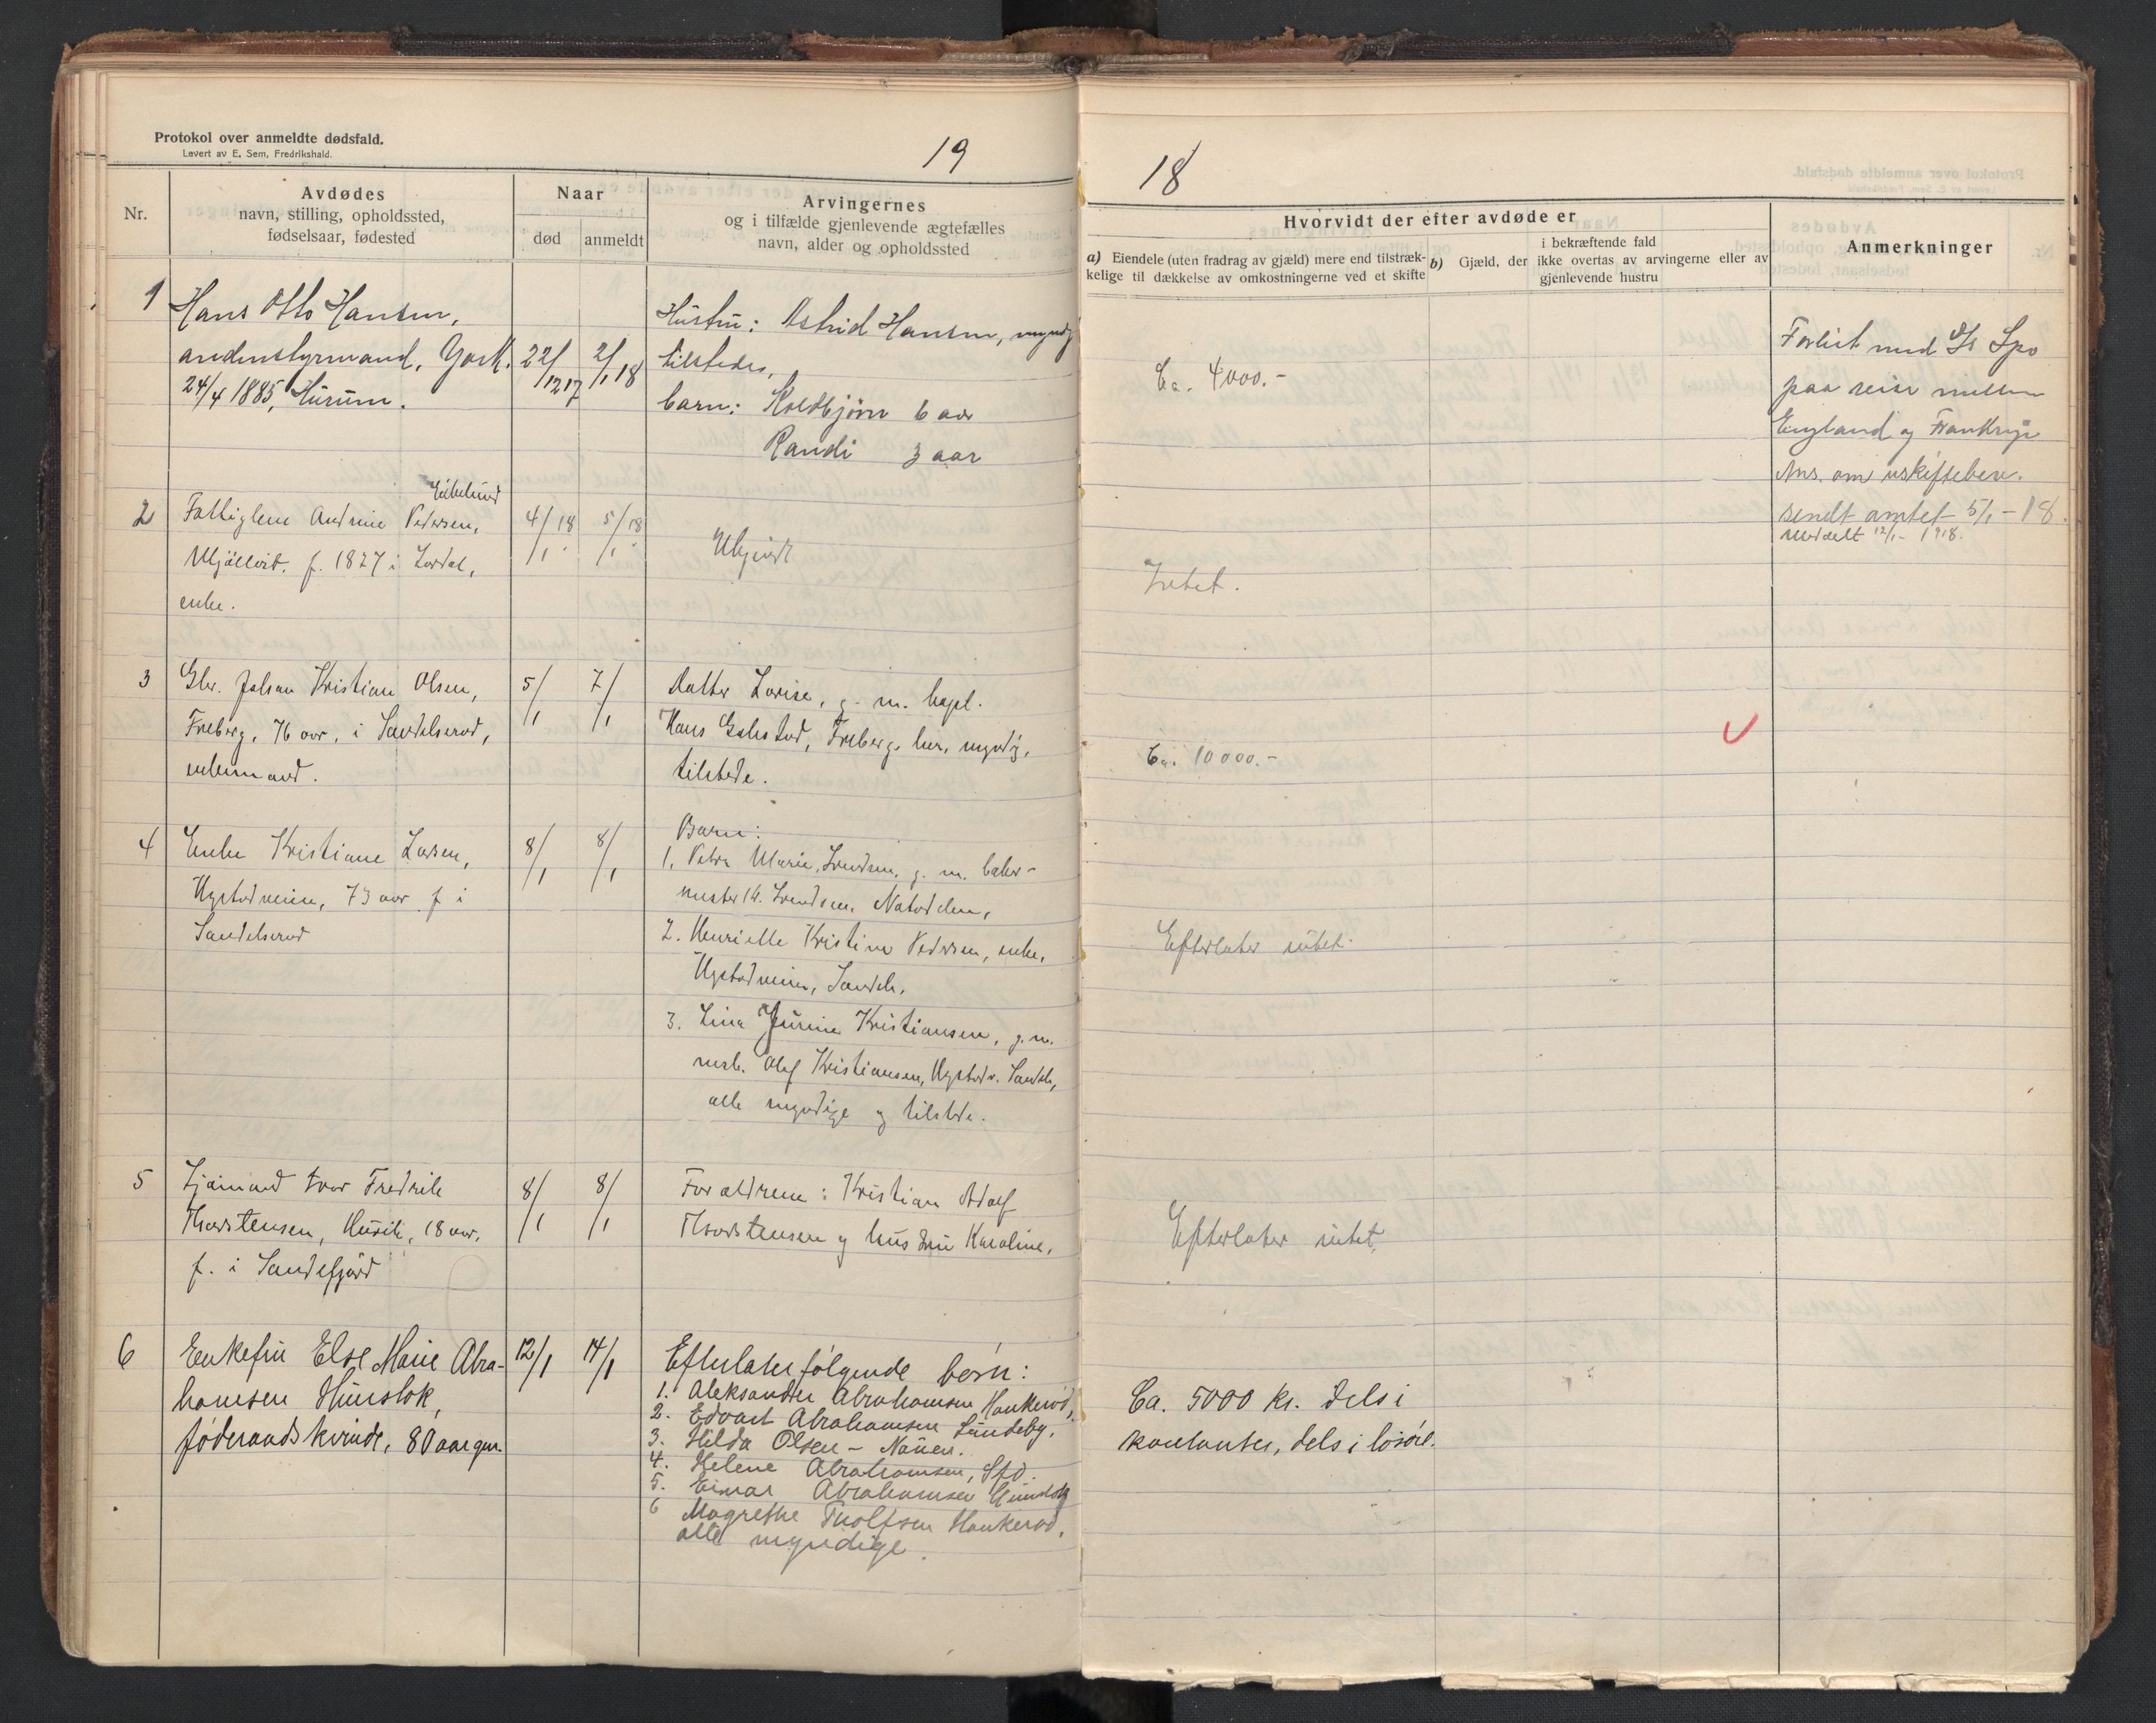 Protokol over anmeldte dødsfald.
Levert av E. Sem, Fredrikshald.
19
18
Nr.
Avdødes
navn, stilling, opholdssted,
fødselsaar, fødested
Naar
død
anmeldt
Arvingernes
og i tilfælde gjenlevende ægtefælles
navn, alder og opholdssted
Hvorvidt der efter avdøde er
a) Eiendele (uten fradrag av gjæld) mere end tilstræk-
kelige til dækkelse av omkostningerne ved et skifte
b) Gjæld, der
i bekræftende fald
ikke overtas av arvingerne eller av
gjenlevende hustru
Anmerkninger
1
Hans Otto Hansen,
andenstyrmand,
24/4 1885, Hurum.
22/12 17
2/1 18
Hustru: Astrid Hansen, myndig
tilstedes,
barn: 6 aar
Randi 3 aar
Ca. 4000.-
Forlist med D/S Spo
paa reise mellem
England og Frankrige
Ans. om uskiftebev.
sendt amtet 5/1 - 18.
Meddelt 12/1 - 1918.
2
Fattiglem Andrine Pedersen,
f. 1827 i
enke.
4/1 18.
5/1 18.
Ukjendt
Intet.
3
Gbr. Johan Kristian Olsen,
Freberg, 76 aar, i Sandeherred,
enkemand.
5/1
7/1
Datter Lovise, g. m. kapt.
Hans Freberg, her, myndig,
tilstede.
Ca. 10 000.-
4
Enke Kristiane Larsen,
73 aar f. i
Sandeherred
8/1
8/1
Barn:
1. Petra Marie g. m. baker-
mester Notodden,
2. Henriette Kristine Pedersen, enke,
Sandeh.
3. Lina Jurine Kristiansen, g. m.
Olaf Kristiansen, Sandeh.,
alle myndige og tilstede.
Efterlater intet.
5
Sjømand Ivar Fredrik
Thorstensen, 18 aar,
f. i Sandefjord
8/1
8/1
Forældrene: Kristian Adolf
Thorstensen og hustru Karoline.
Efterlater intet.
6
Enkefru Else Marie Abra-
hamsen Himstok,
føderaadskvinde, 80 aar gm.
12/1
14/1
Efterlater følgende børn:
1. Aleksander Abrahamsen Haukerød,
2. Edvart Abrahamsen Lundeby.
3. Hilda Olsen - Nauen.
4. Helene Abrahamsen, Sfd.
5. Einar Abrahamsen
6 Magrethe Tholfsen Haukerød,
alle myndige.
Ca. 5000 kr. dels i
kontanter, dels i løsøre.